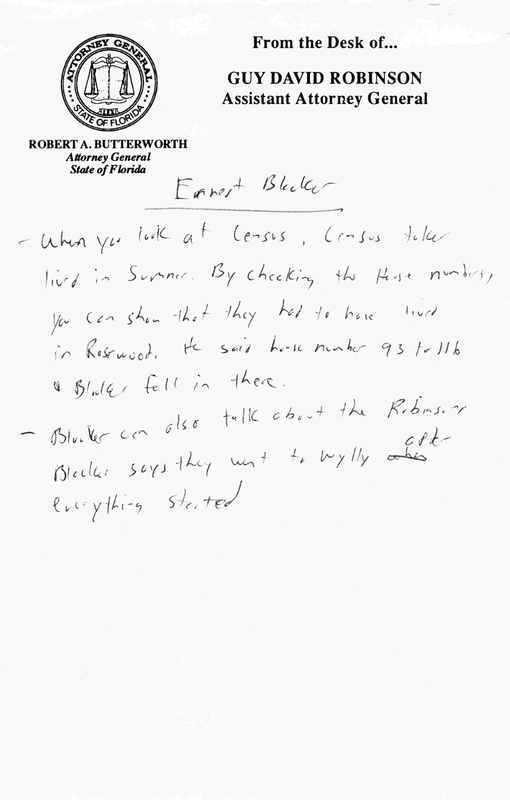 ATTORNEY GENERAL
STATE OF FLORIDA
From the Desk of...
GUY DAVID ROBINSON
Assistant Attorney General
ROBERT A. BUTTERWORTH
Attorney General
State of Florida
Ernest Blocker
- When you look at Census, Census taker
lived in Sumner. By checking the House numbers,
you can show that they had to have lived
in Rosewood. He said house number 93 to 116
& Blocker fell in there.
- Blocker can also talk about the Robinsons
Blocker says they went to Wylly after
everything started